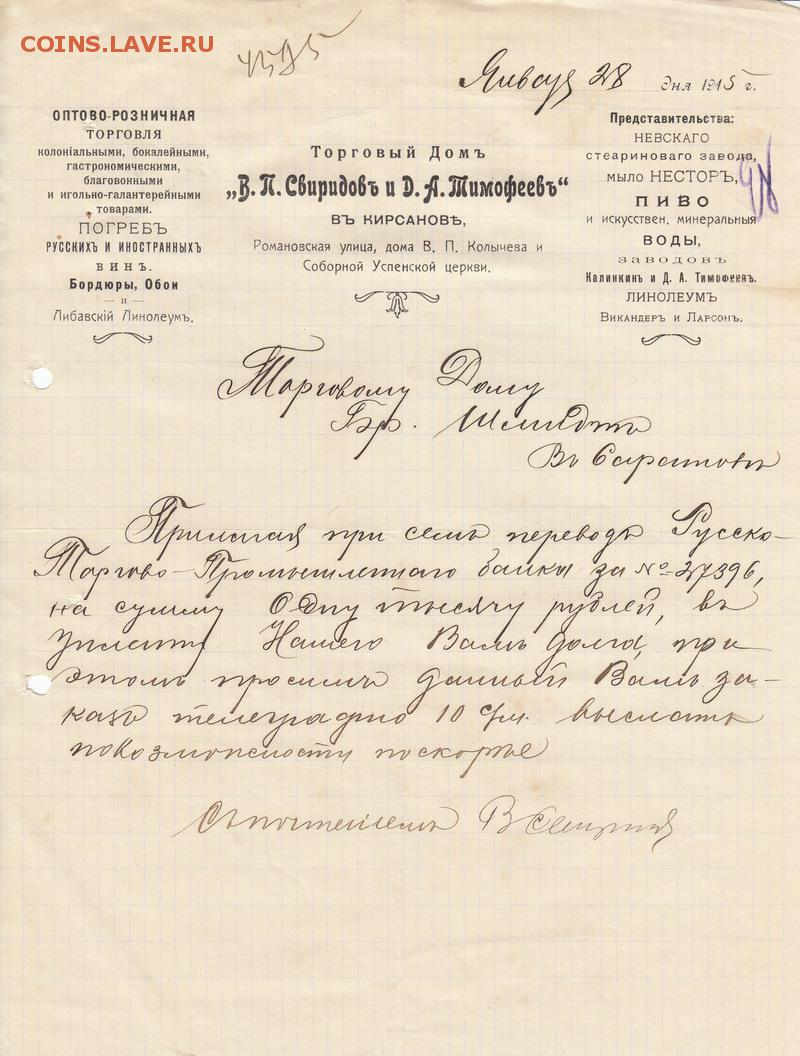 COINS.LAVE.RU
Января 28 дня 1915 г.
ОПТОВО-РОЗНИЧНАЯ
ТОРГОВЛЯ
колоніальными, бокалейными,
гастрономическими,
благовонными
и игольно-галантерейными
товарами.
ПОГРЕБЪ
РУССКИХЪ И ИНОСТРАННЫХЪ
ВИНЪ.
Бордюры, Обои
— и —
Либавскій Линолеумъ.
Торговый Домъ
„В. П. Свиридовъ и Д. А. Тимофеевъ“
ВЪ КИРСАНОВѢ,
Романовская улица, дома В. П. Колычева и
Соборной Успенской церкви.
Представительства:
НЕВСКАГО
стеариноваго завода,
мыло НЕСТОРЪ,
ПИВО
и искусствен. минеральныя
ВОДЫ,
ЗАВОДОВЪ
Калинкинъ и Д. А. Тимофеевъ.
ЛИНОЛЕУМЪ
Викандеръ и Ларсонъ.
Торговому Дому
Бр. Шмидтъ
Въ Саратовѣ
Прилагая при семъ переводъ Русско-
Торгово-Промышленнаго банка за № 27396,
на сумму Одну тысячу рублей, въ
уплату Нашего Вамъ долга, при
этомъ просимъ данный Вамъ за-
казъ телеграфно 10 выслать
по возможности поскорѣе
Съ почтениемъ